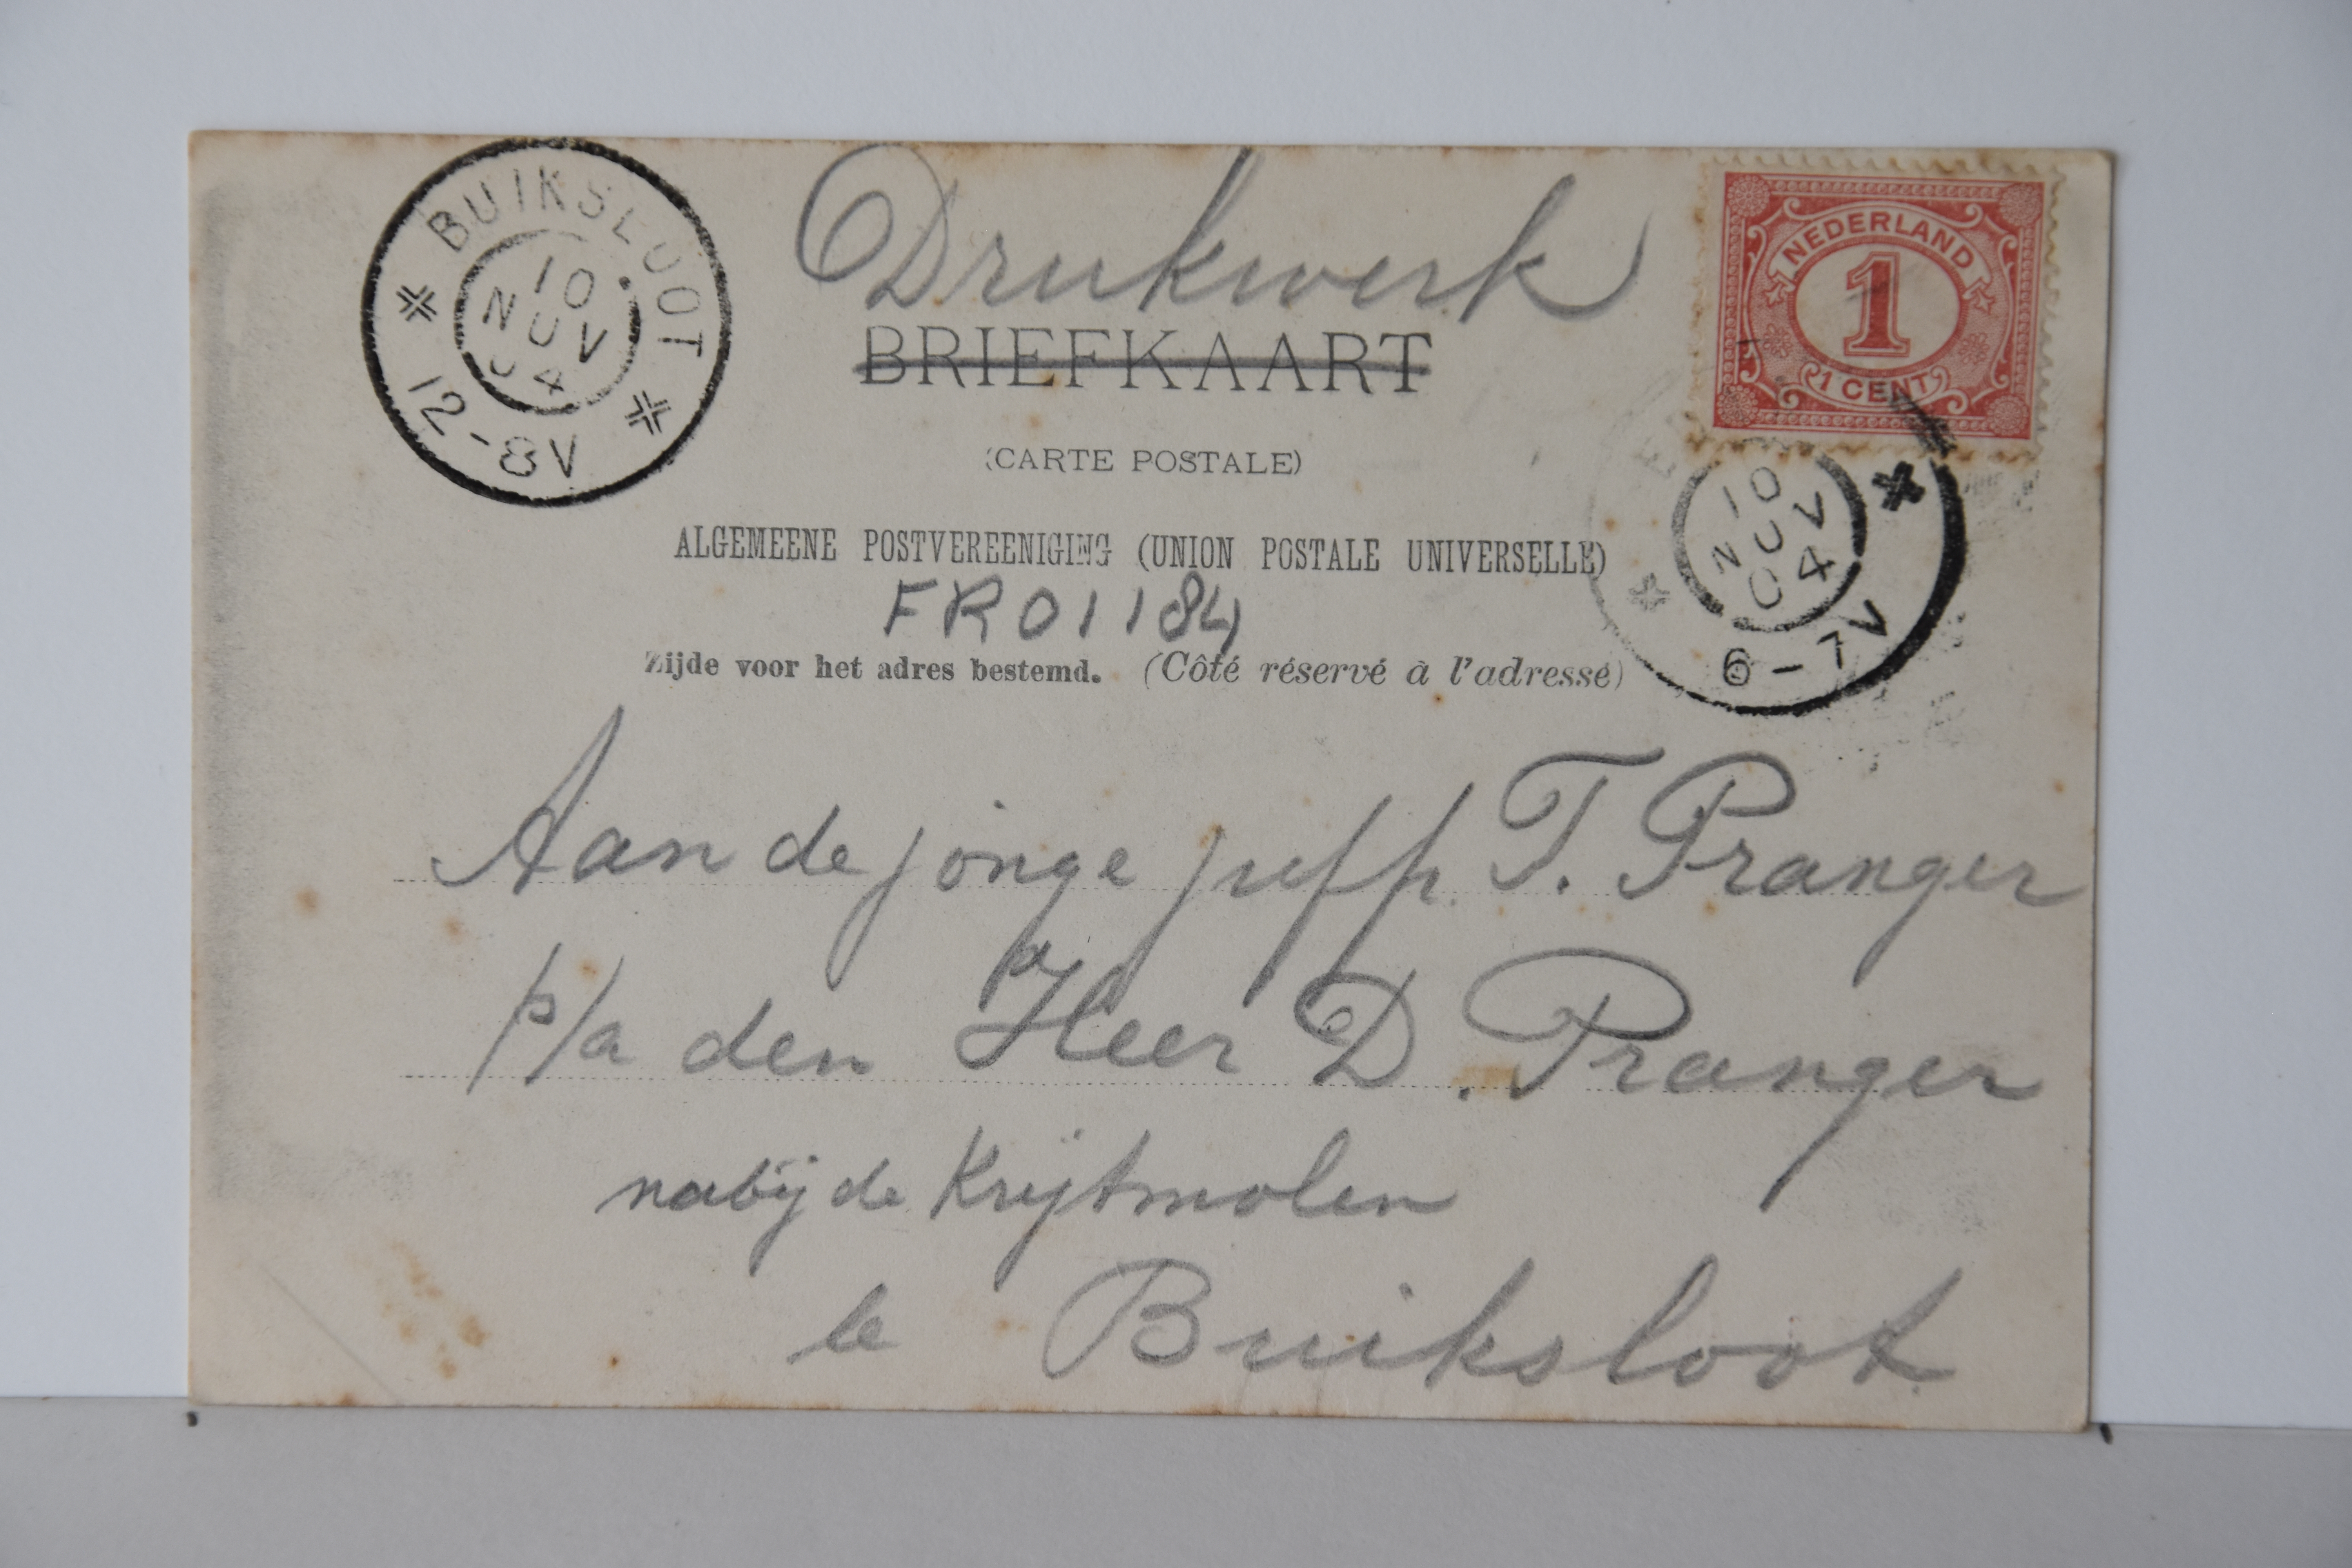 Drukwerk
BRIEFKAART
(CARTE POSTALE)
ALGEMEENE POSTVEREENIGING (UNION POSTALE UNIVERSELLE)
FR01184
Zijde voor het adres bestemd. (Côté réservé à l'adresse)
Aan de jonge juffr. T. Pranger
p/a den Heer D. Pranger
nabij de Krijtmolen
te Buiksloot
BUIKSLOOT
10
NOV
04
12-8V
NEDERLAND
1
1 CENT
10
NOV
04
6-7V